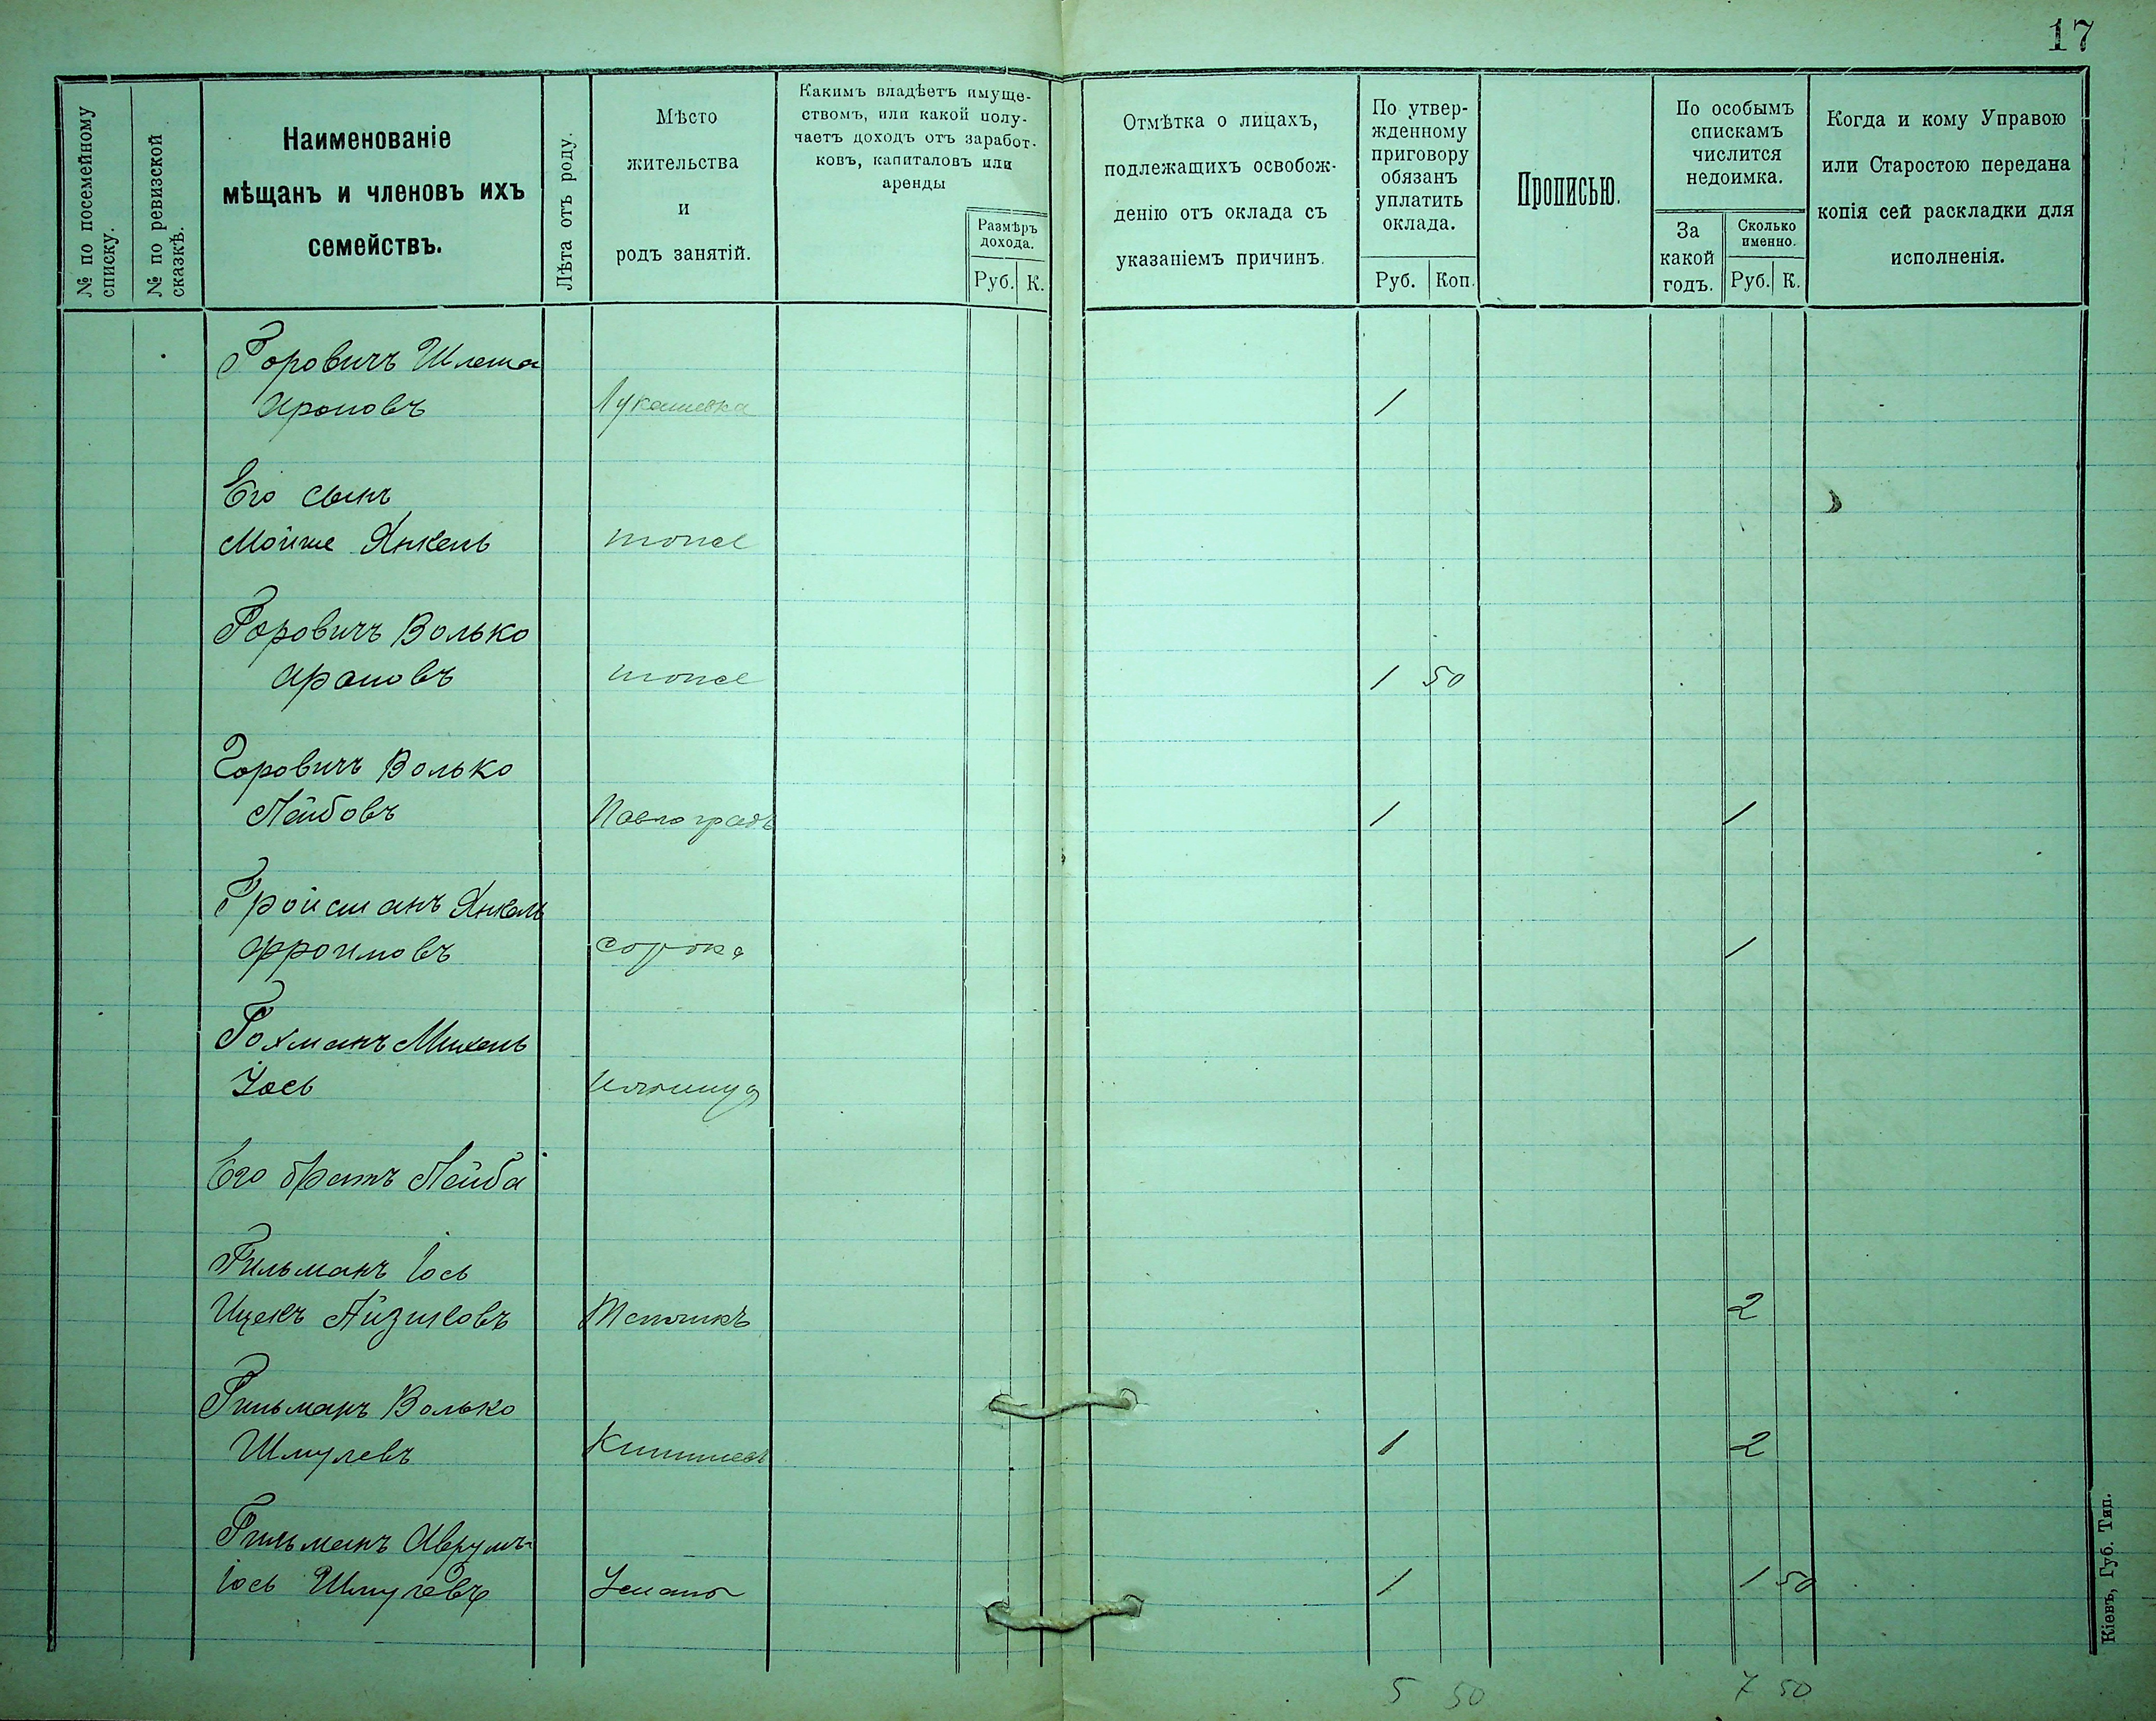 17
№ по посемейному списку.
№ по ревизской сказкѣ.
Наименованіе
мѣщанъ и членовъ ихъ
семействъ.
Лѣта отъ роду.
Мѣсто
жительства
и
родъ занятій.
Какимъ владѣетъ имуще-
ствомъ, или какой полу-
чаетъ доходъ отъ заработ-
ковъ, капиталовъ или
аренды
Размѣръ
дохода.
Руб. К.
Отмѣтка о лицахъ,
подлежащихъ освобож-
денію отъ оклада съ
указаніемъ причинъ.
По утвер-
жденному
приговору
обязанъ
уплатить
оклада.
Руб. Коп.
Прописью.
По особымъ
спискамъ
числится
недоимка.
За
какой
годъ.
Сколько
именно.
Руб. К.
Когда и кому Управою
или Старостою передана
копія сей раскладки для
исполненія.
Горовичъ Шлема
Ароновъ Лукашевка 1
Его сынъ
Мойше Янкель тоже
Горовичъ Волько
Ароновъ тоже 1 50
Горовичъ Волько
Лейбовъ Павлоградъ 1 1
Гройсманъ Янкель
Фроимовъ Сорока 1
Гохманъ Михель
Іось
Его братъ Лейба
Гильманъ Іось
Ицекъ Айзиковъ 2
Гильманъ Волько
Шмулевъ Кишиневъ 1 2
Гильманъ Аврумъ-
Іось Шмулевъ Умань 1 1 50
5 50 7 50
Кіевъ, Губ. Тип.